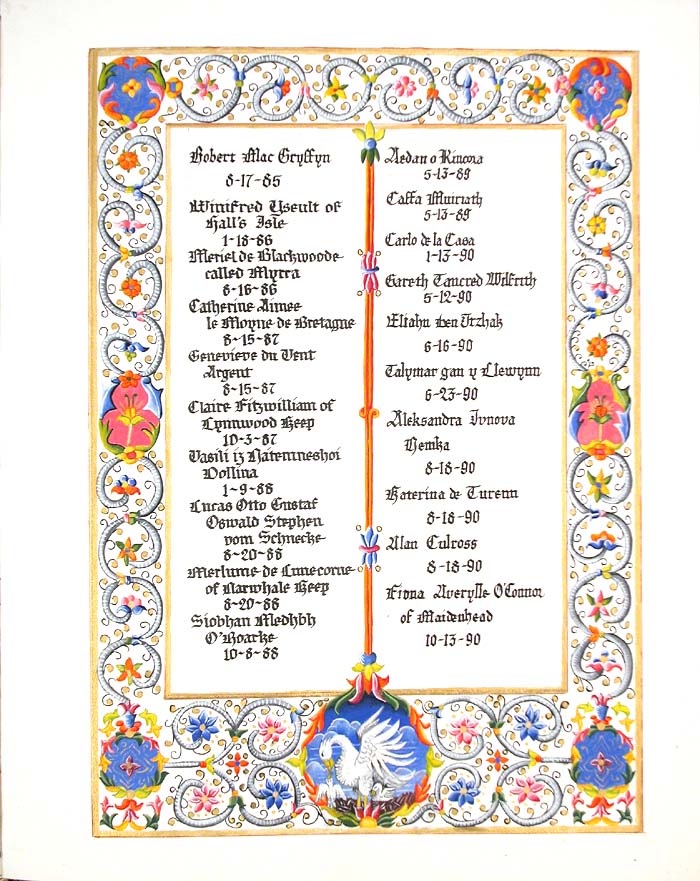 Robert Mac Gryffyn
8-17-85
Winifred Yseult of
Hall's Isle
1-18-86
Meriel de Blackwoode
called Myrra
8-16-86
Catherine Aimee
le Moyne de Bretagne
8-15-87
Genevieve du Vent
Argent
8-15-87
Claire Fitzwilliam of
Lynnwood Keep
10-3-87
Vasili iz Naremneshoi
Dollina
1-9-88
Lucas Otto Gustaf
Oswald Stephen
vom Schnecke
8-20-88
Merlume de Lunecorne
of Narwhale Keep
8-20-88
Siobhan Medhbh
O'Roarke
10-8-88
Aedan o Kincora
5-13-89
Caffa Muiriath
5-13-89
Carlo de la Casa
1-13-90
Gareth Tancred Wilfrith
5-12-90
Eliahu ben Itzhak
6-16-90
Talymar gan y Llewynn
6-23-90
Aleksandra Ivnova
8-18-90
Katerina de Turenn
8-18-90
Alan Culross
8-18-90
Fiona Averylle O'Connor
of Maidenhead
10-13-90